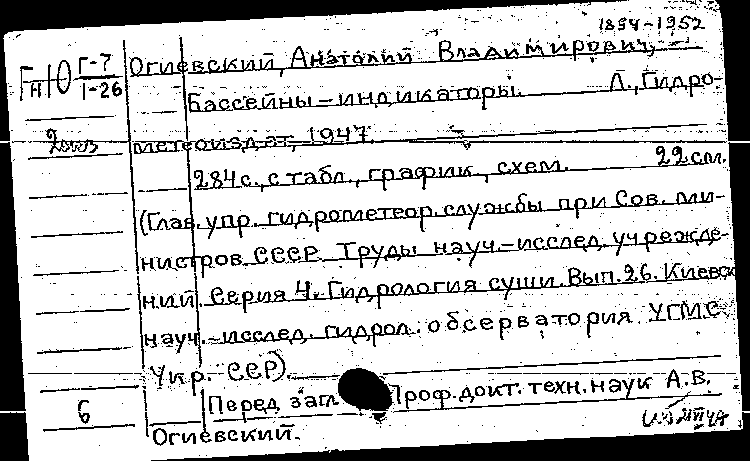 1894-1952
Г-7
1-26
Огиевский, Анатолий Владимирович,
Бассейны-индикаторы. Л., Гидро-
метеоиздат, 1947.
284с., с табл., график., схем. 22см.
(Глав. упр. гидрометеор. службы при Сов. ми-
нистров СССР. Труды науч.-исслед. учрежде-
ний. Серия 4. Гидрология суши. Вып. 26. Киевск.
науч.-исслед. гидрол. обсерватория УГМС
Укр. ССР).
Перед загл. Проф. докт. техн. наук А.В.
6
Огиевский.